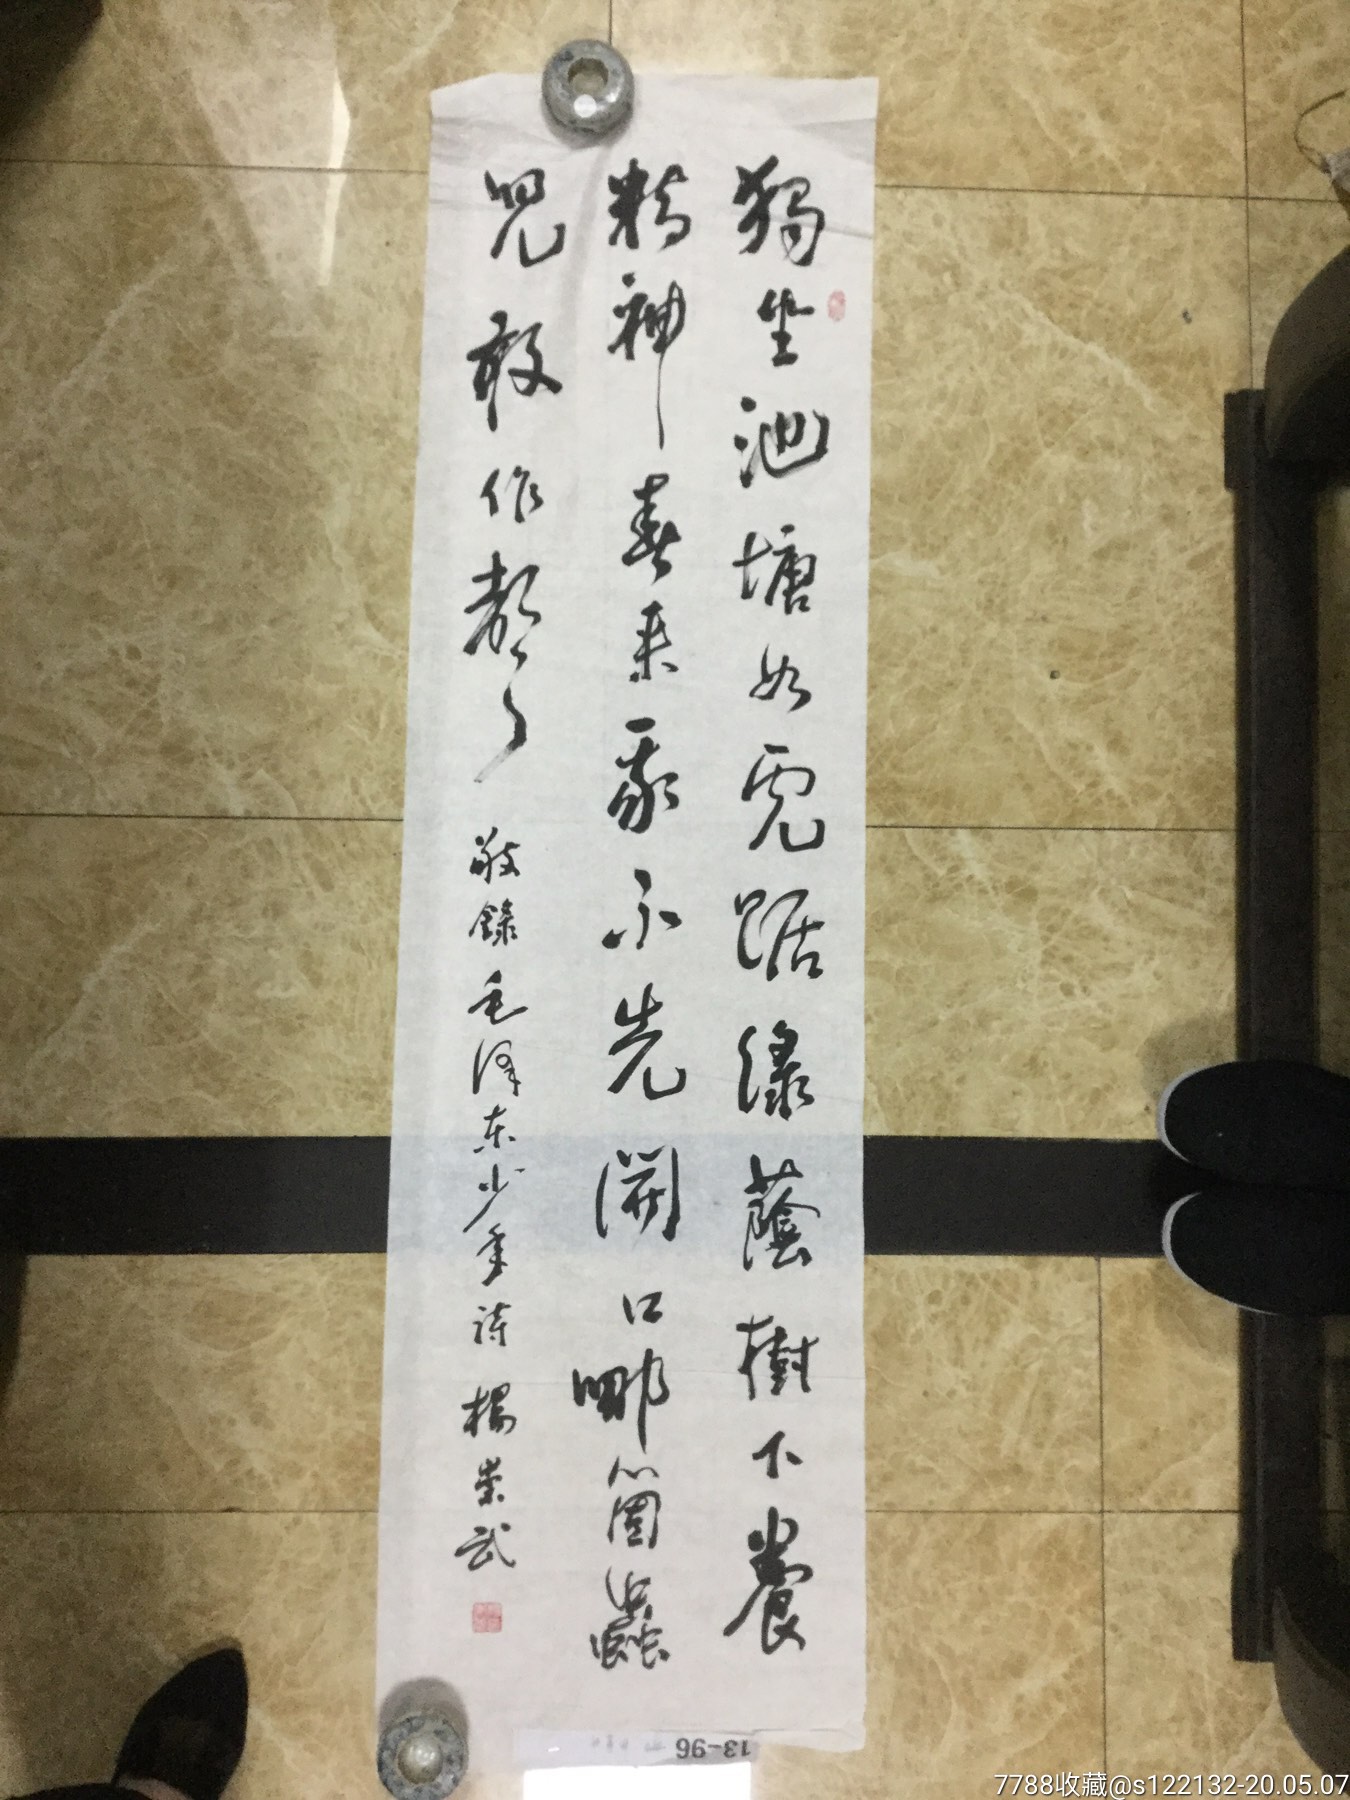 獨坐池塘如虎踞綠蔭樹下養
精神春来我不先開口哪箇蟲
兒敢作聲
敬錄毛泽东少年詩 楊崇武
13-96
7788收藏@s122132-20.05.07